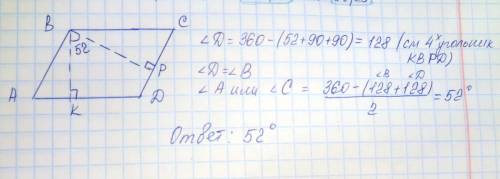 B
C
52
P
A
K
D
∠D = 360 - (52+90+90) = 128 (см 4ˣ угольник
KBPD)
∠D = ∠B
∠B ∠D
∠A или ∠C = 360 - (128 + 128) = 52°
2
Ответ: 52°